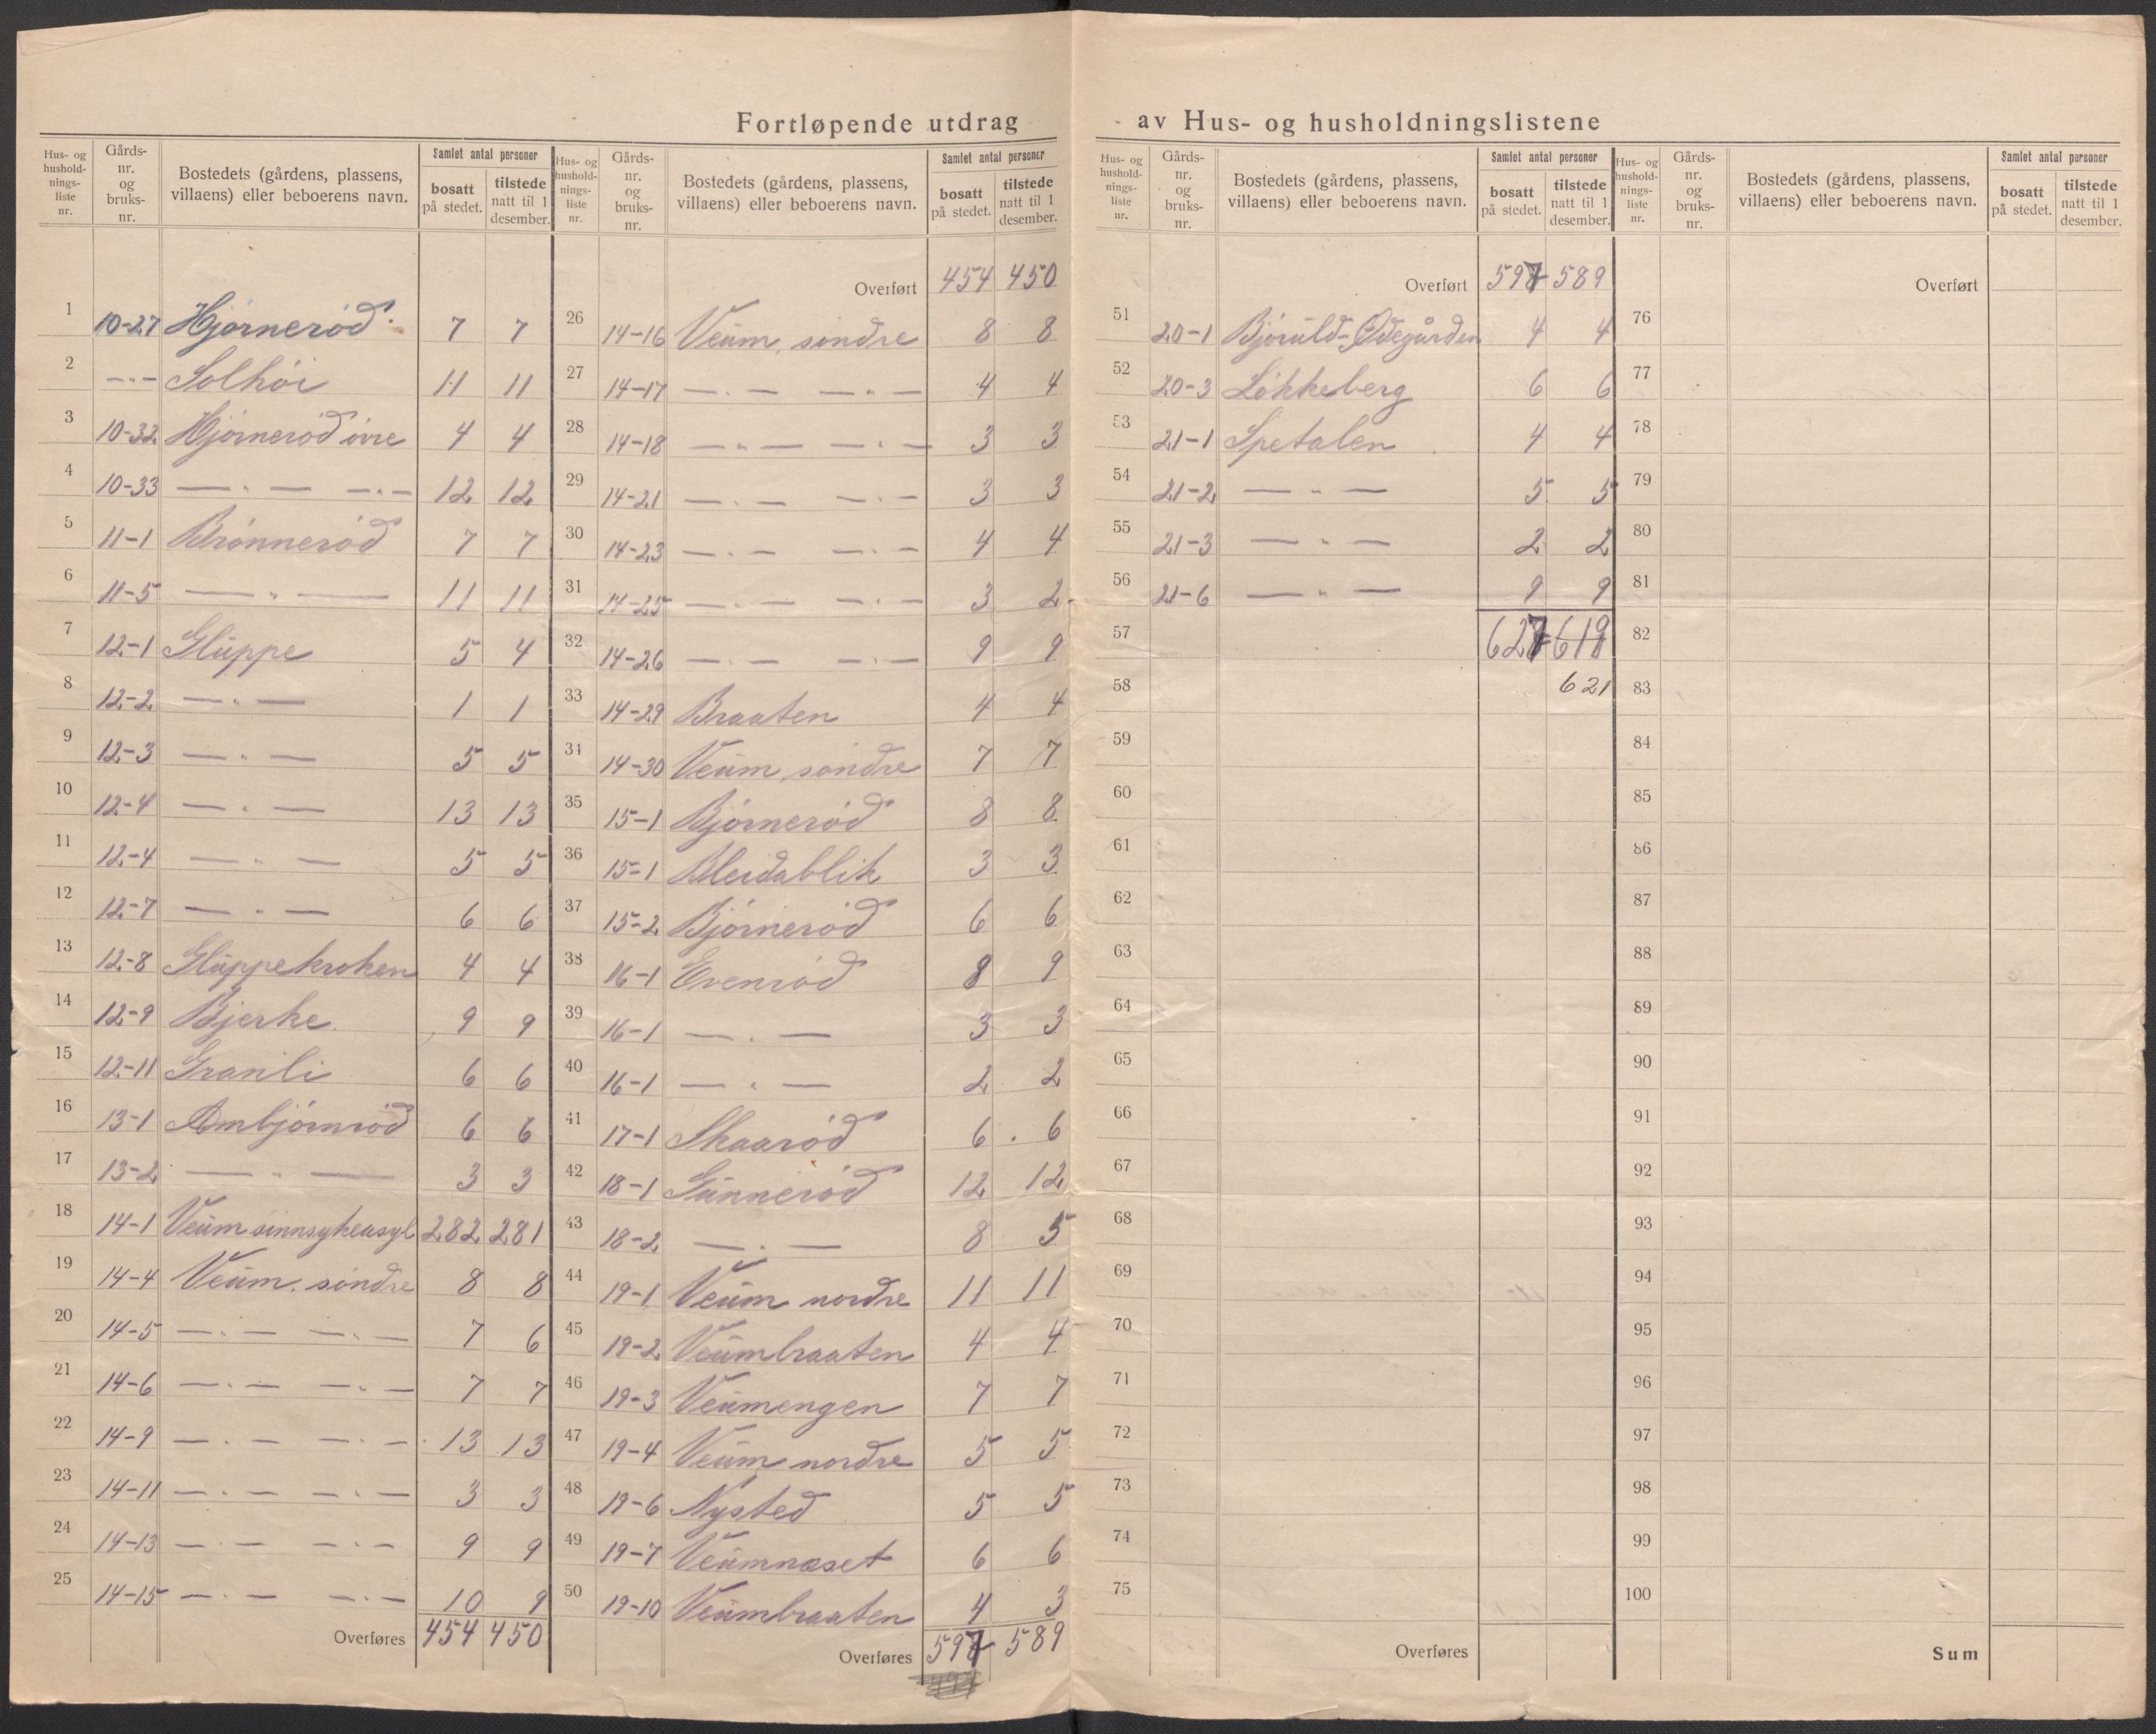 Fortløpende utdrag av Hus- og husholdningslistene
Hus- og hushold-nings-liste nr. Gårds-nr. og bruks-nr. Bostedets (gårdens, plassens, villaens) eller beboerens navn. Samlet antal personer bosatt på stedet. tilstede natt til 1 desember.
1 10-27 Hjørnerød 7 7
2 -"- Solhøi 11 11
3 10-32 Hjørnerød øvre 4 4
4 10-33 — " — —"— 12 12
5 11-1 Brønnerød 7 7
6 11-5 — " — 11 11
7 12-1 Gluppe 5 4
8 12-2 — " — 1 1
9 12-3 — " — 5 5
10 12-4 — " — 13 13
11 12-4 — " — 5 5
12 12-7 — " — 6 6
13 12-8 Gluppekroken 4 4
14 12-9 Bjerke 9 9
15 12-11 Granli 6 6
16 13-1 Ambjørnrød 6 6
17 13-2 — " — 3 3
18 14-1 Veum sinnsykeasyl 282 281
19 14-4 Veum søndre 8 8
20 14-5 — " — — " — 7 6
21 14-6 — " — — " — 7 7
22 14-9 — " — — " — 13 13
23 14-11 — " — — " — 3 3
24 14-13 — " — — " — 9 9
25 14-15 — " — — " — 10 9
Overføres 454 450
Hus- og hushold-nings-liste nr. Gårds-nr. og bruks-nr. Bostedets (gårdens, plassens, villaens) eller beboerens navn. Samlet antal personer bosatt på stedet. tilstede natt til 1 desember.
Overført 454 450
26 14-16 Veum søndre 8 8
27 14-17 — " — — " — 4 4
28 14-18 — " — — " — 3 3
29 14-21 — " — — " — 3 3
30 14-23 — " — — " — 4 4
31 14-25 — " — — " — 3 2
32 14-26 — " — — " — 9 9
33 14-29 Braaten 4 4
34 14-30 Veum søndre 7 7
35 15-1 Bjørnerød 8 8
36 15-1 Bleidablik 3 3
37 15-2 Bjørnerød 6 6
38 16-1 Evenrød 8 9
39 16-1 — " — 3 3
40 16-1 — " — 2 2
41 17-1 Skaarød 6 6
42 18-1 Gunnerød 12 12
43 18-2 — " — 8 5
44 19-1 Veum nordre 11 11
45 19-2 Veumbraaten 4 4
46 19-3 Veumengen 7 7
47 19-4 Veum nordre 5 5
48 19-6 Nysted 5 5
49 19-7 Veumnæset 6 6
50 19-10 Veumbraaten 4 3
Overføres 597 589
Hus- og hushold-nings-liste nr. Gårds-nr. og bruks-nr. Bostedets (gårdens, plassens, villaens) eller beboerens navn. Samlet antal personer bosatt på stedet. tilstede natt til 1 desember.
Overført 597 589
51 20-1 Bjøruld-Ødegården 4 4
52 20-3 Løkkeberg 6 6
53 21-1 Spetalen 4 4
54 21-2 — " — 5 5
55 21-3 — " — 2 2
56 21-6 — " — 9 9
57 627 619
58 621
59
60
61
62
63
64
65
66
67
68
69
70
71
72
73
74
75
Overføres
Hus- og hushold-nings-liste nr. Gårds-nr. og bruks-nr. Bostedets (gårdens, plassens, villaens) eller beboerens navn. Samlet antal personer bosatt på stedet. tilstede natt til 1 desember.
Overført
76
77
78
79
80
81
82
83
84
85
86
87
88
89
90
91
92
93
94
95
96
97
98
99
100
Sum